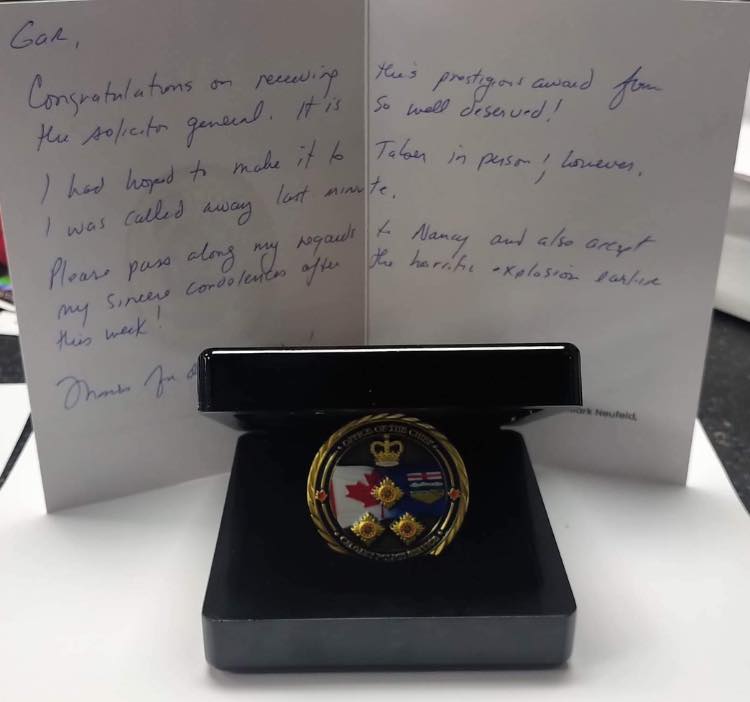 Gar,
Congratulations on receiving this prestigious award from
the solicitor general. It is so well deserved!
I had hoped to make it to Taber in person, however,
I was called away last minute.
Please pass along my regards to Nancy and also accept
my sincere condolences after the horrific explosion earlier
this week!
Thanks for
ark Neufeld,
OFFICE OF THE CHIEF
CALGARY POLICE SERVICE